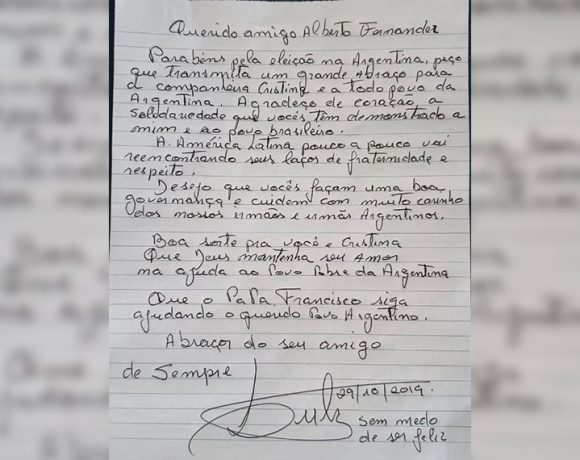 Querido amigo Alberto Fernandez
Parabéns pela eleição na Argentina, peço
que transmita um grande Abraço para
a companheira Cristina e a todo povo da
Argentina. Agradeço de coração, a
solidariedade que vocês têm demonstrado a
mim e ao povo brasileiro.
A América Latina pouco a pouco vai
reencontrando seus laços de fraternidade e
respeito.
Desejo que vocês façam uma boa
governança e cuidem com muito carinho
dos nossos irmãos e irmãs Argentinos.
Boa sorte pra você e Cristina
Que Deus mantenha seu Amor
na ajuda ao Povo Pobre da Argentina
Que o Papa Francisco siga
ajudando o querido Povo Argentino.
Abraços do seu amigo
de Sempre
Lula
29/10/2019.
sem medo
de ser feliz